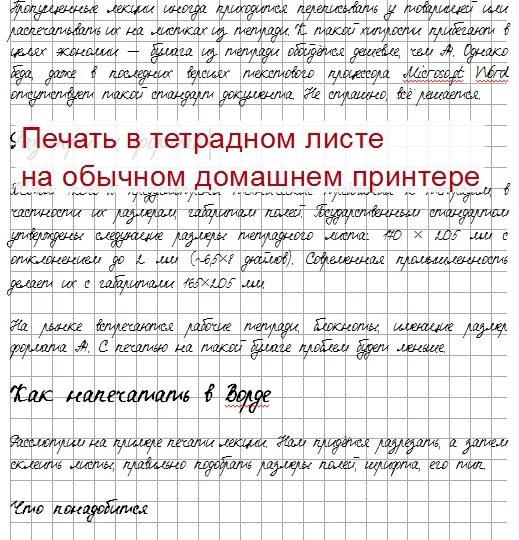 Пропущенные лекции иногда приходится переписывать у товарищей или
распечатывать их на листках из тетради. К такой хитрости прибегают в
целях экономии — бумага из тетради обойдётся дешевле, чем А4. Однако
беда, даже в последних версиях текстового процессора Microsoft Word
отсутствует такой стандарт документа. Не страшно, всё решается.
Печать в тетрадном листе
на обычном домашнем принтере
частности их размерам, габаритам полей. Государственным стандартом
утверждены следующие размеры тетрадного листа: 170 × 205 мм с
отклонением до 2 мм (~6,5×8 дюймов). Современная промышленность
делает их с габаритами 165×205 мм.
На рынке встречаются рабочие тетради, блокноты, имеющие размер
формата А4. С печатью на такой бумаге проблем будет меньше.
Как напечатать в Ворде
Рассмотрим на примере печати лекции. Нам придётся разрезать, а затем
склеить листы, правильно подобрать размеры полей, шрифта, его тип.
Что понадобится